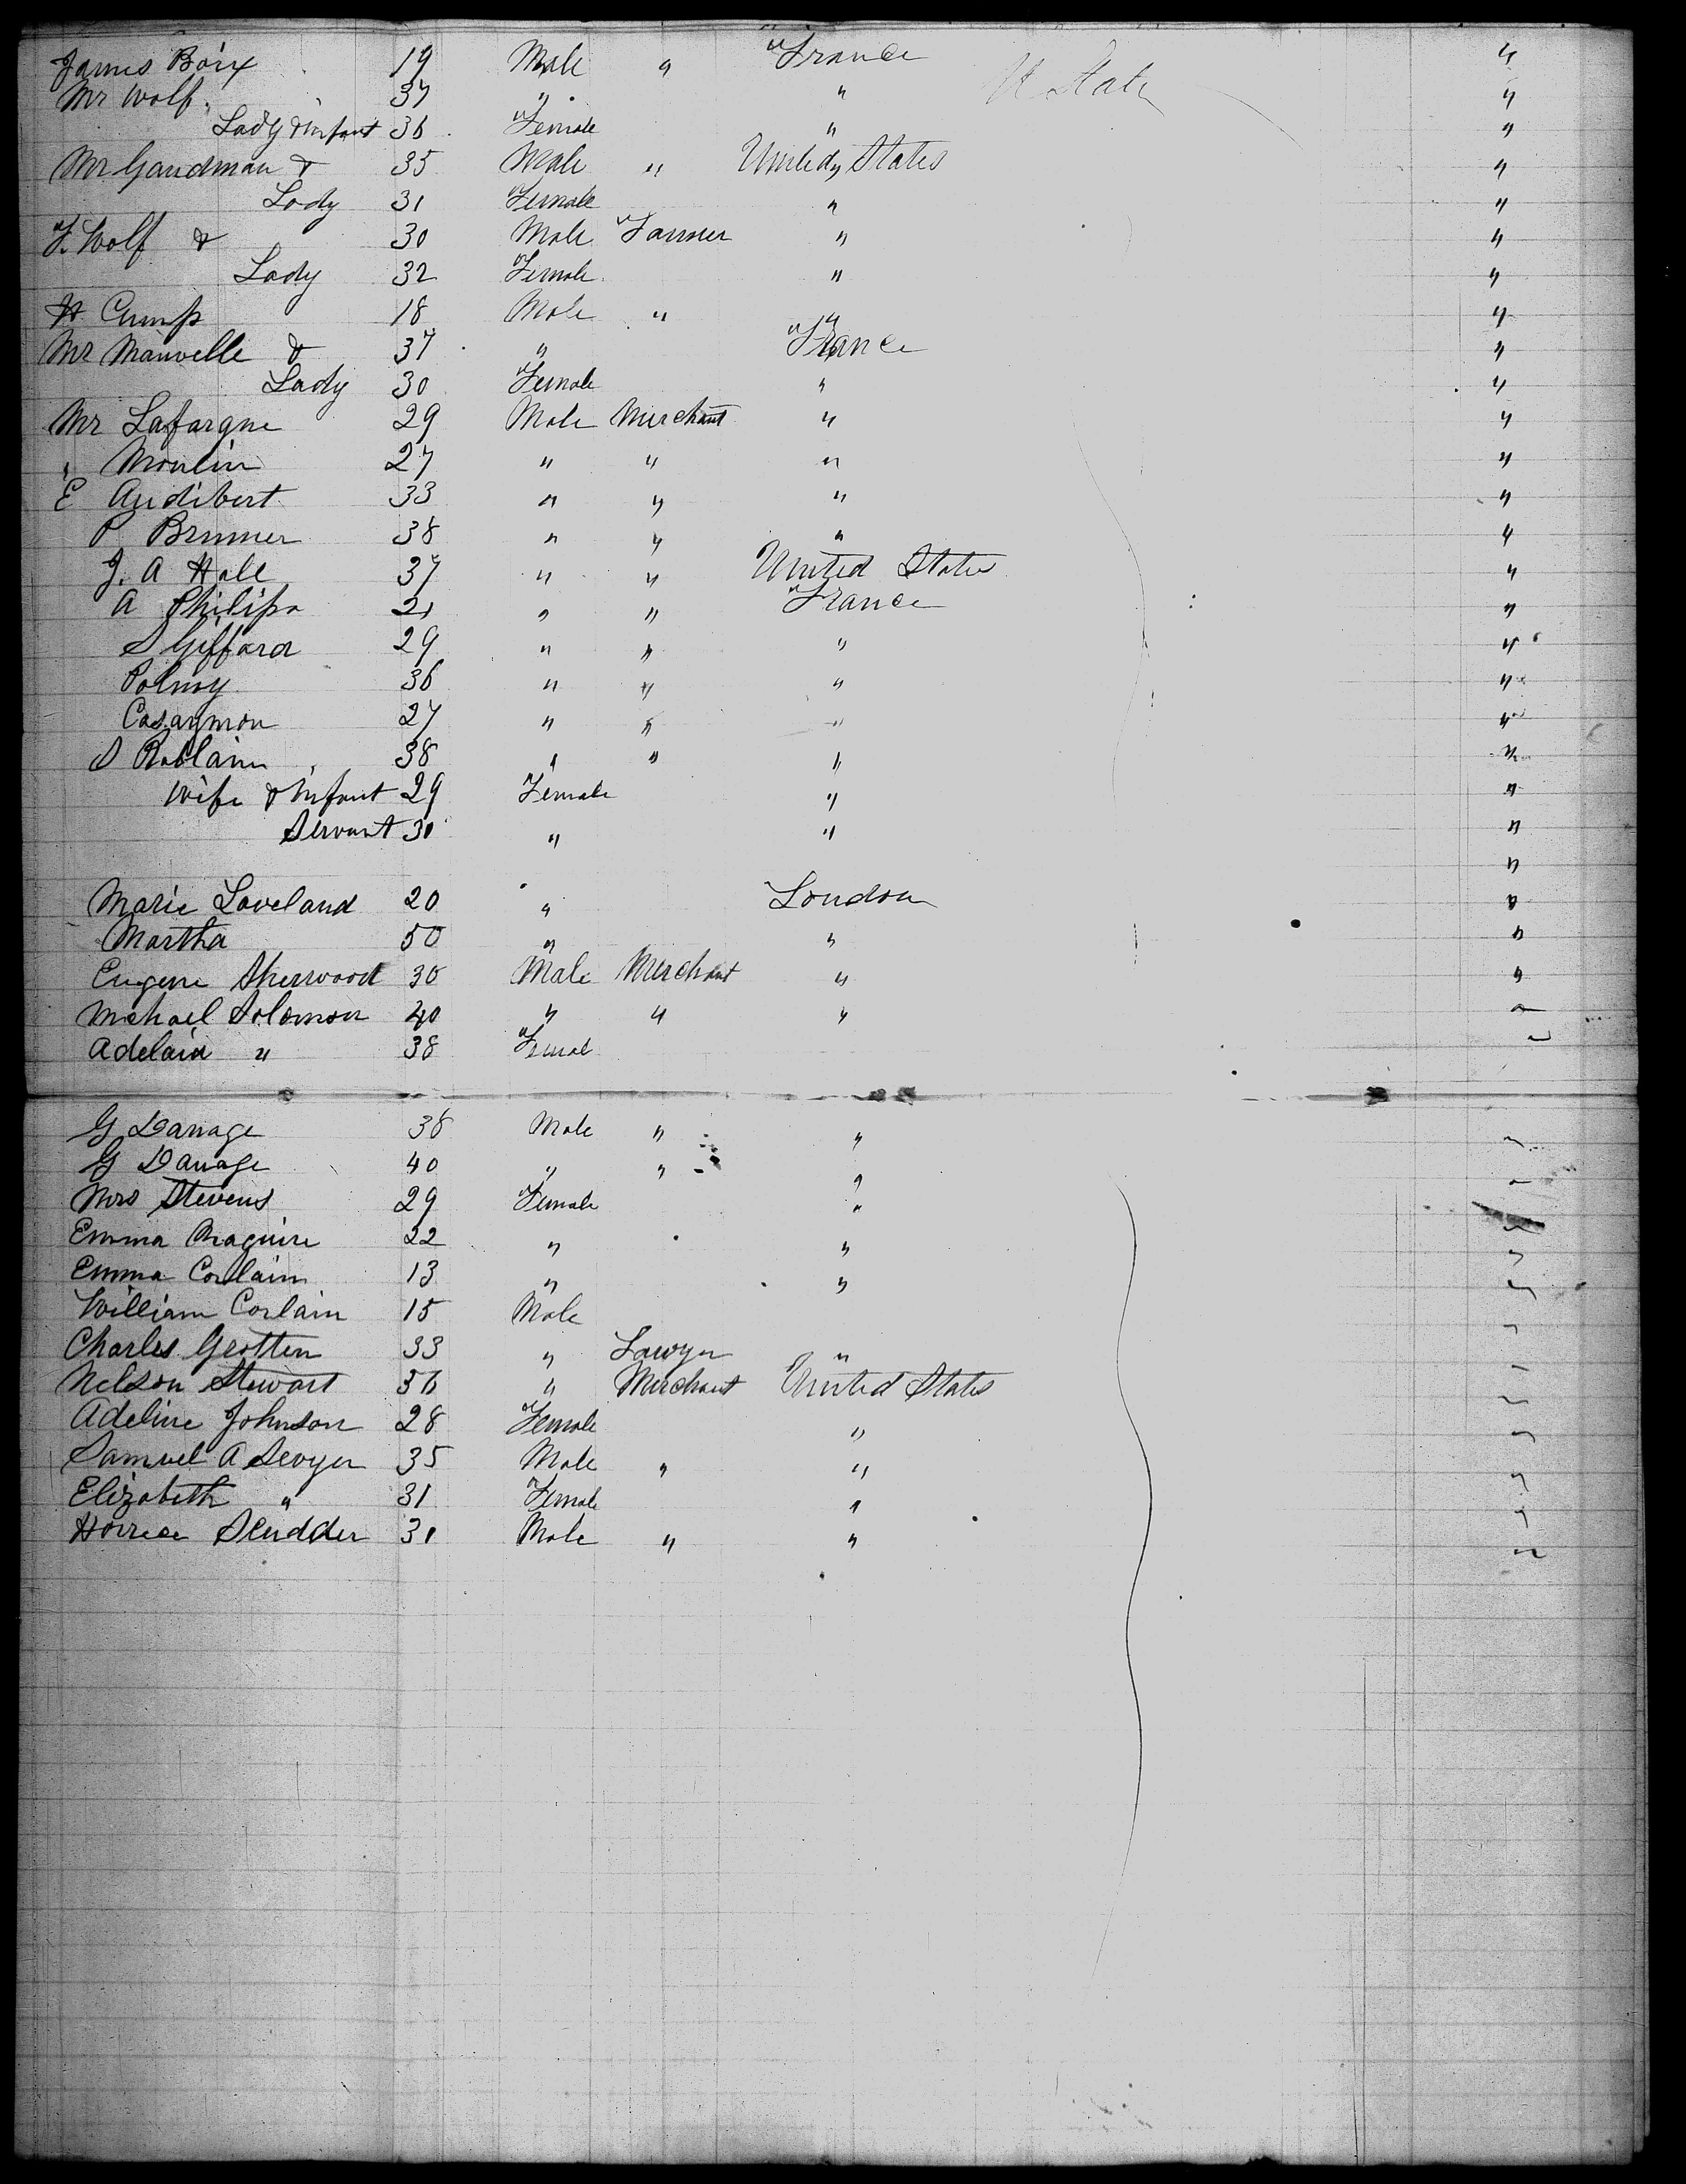 James Boix 19 Male " France U State "
Mr Wolf. 37 " " "
Lady & Infant 36 Female " "
Mr Gaudman & 35 Male " United States "
Lady 31 Female " "
F. Wolf & 30 Male Farmer " "
Lady 32 Female " "
H Cump 18 Male " " "
Mr Mauvelle & 37 " France "
Lady 30 Female " "
Mr Lafargue 29 Male Merchant " "
" Moulin 27 " " " "
E Audibert 33 " " " "
P Brunner 38 " " " "
J. A Hale 37 " " United States "
A Philips 21 " " France "
S Giffard 29 " " " "
Polmy 36 " " " "
Casaymon 27 " " " "
S Roblain 38 " " " "
Wife & Infant 29 Female " "
Servant 30 " " "
"
Marie Loveland 20 " London "
Martha 50 " " "
Eugene Sherwood 30 Male Merchant " "
Michael Solomon 40 " " " "
Adelaid " 38 Female "
G Danage 38 Male " " "
G Danage 40 " " " "
Mrs Stevens 29 Female " "
Emma Maguire 22 " " "
Emma Conlain 13 " " "
William Conlain 15 Male "
Charles Grotten 33 " Lawyer " "
Nelson Stewart 36 " Merchant United States "
Adeline Johnson 28 Female " "
Samuel A Sevyer 35 Male " " "
Elizabeth " 31 Female " "
Horrece Scudder 30 Male " " "